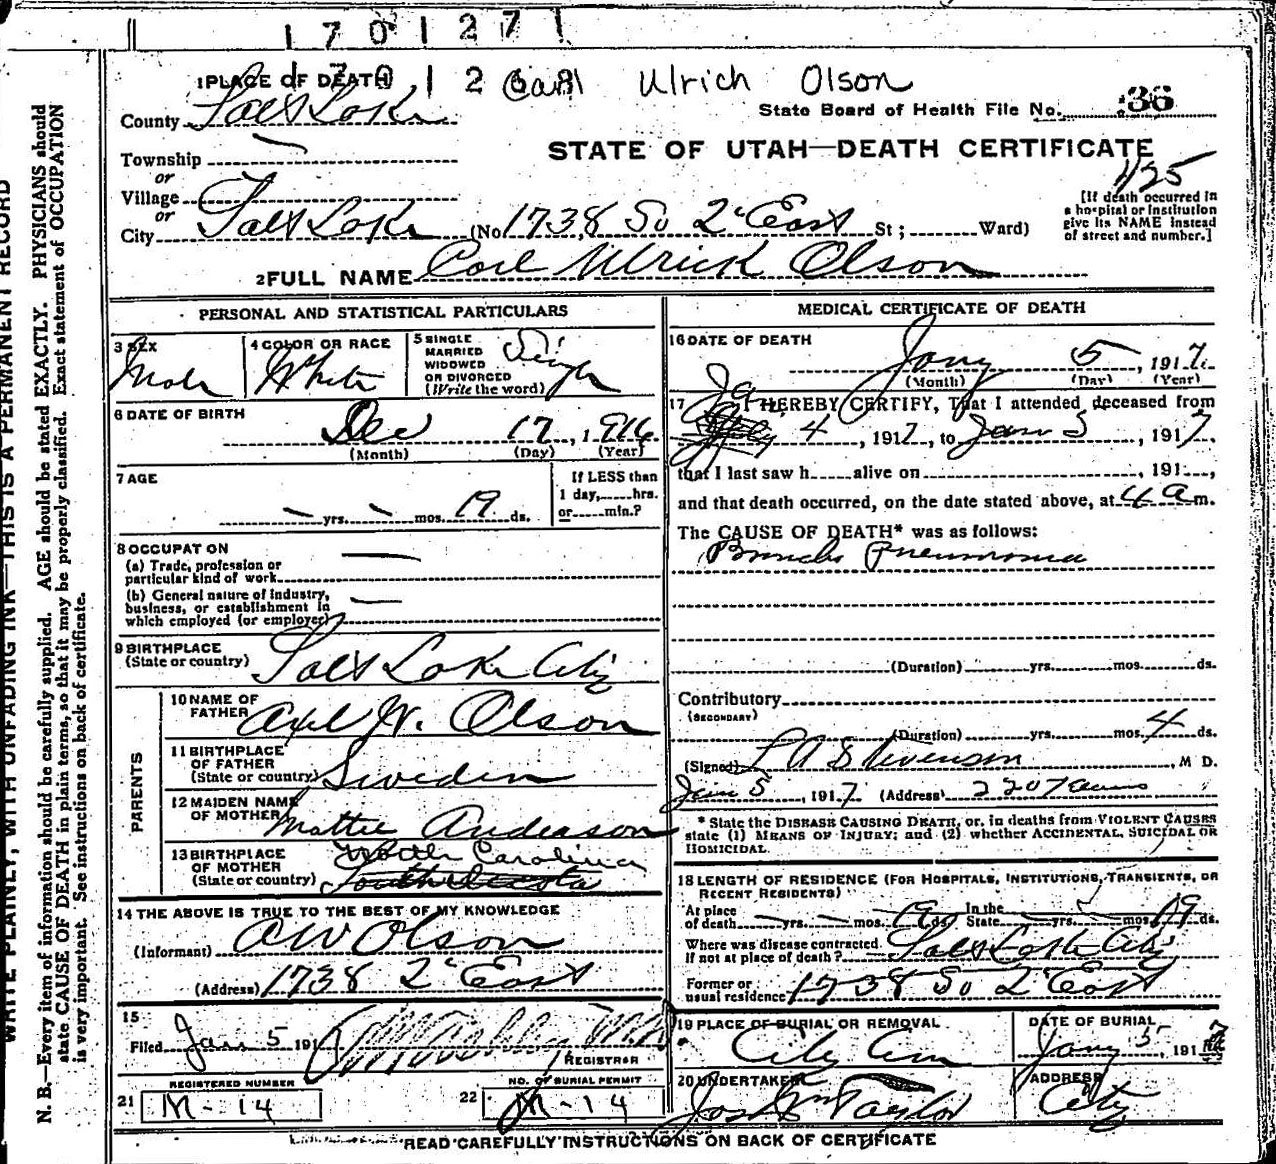 170127
1 PLACE OF DEATH
Carl Ulrich Olson
County Salt Lake
State Board of Health File No. 36
STATE OF UTAH—DEATH CERTIFICATE
Township
or
Village
or
City Salt Lake (No. 1738 So 2" East St; Ward)
1/25
[If death occurred in
a hospital or institution
give its NAME instead
of street and number.]
2 FULL NAME Carl Ulrick Olson
PERSONAL AND STATISTICAL PARTICULARS
3 SEX Male
4 COLOR OR RACE White
5 SINGLE
MARRIED
WIDOWED
OR DIVORCED
(Write the word) Single
6 DATE OF BIRTH
Dec 17, 1916
(Month) (Day) (Year)
7 AGE
— yrs. — mos. 19 ds.
If LESS than
1 day, hrs.
or min.?
8 OCCUPATION
(a) Trade, profession or
particular kind of work —
(b) General nature of industry,
business, or establishment in
which employed (or employer) —
9 BIRTHPLACE
(State or country) Salt Lake City
PARENTS
10 NAME OF
FATHER Axel W. Olson
11 BIRTHPLACE
OF FATHER
(State or country) Sweden
12 MAIDEN NAME
OF MOTHER Mattie Anderson
13 BIRTHPLACE
OF MOTHER
(State or country) North Carolina
14 THE ABOVE IS TRUE TO THE BEST OF MY KNOWLEDGE
(Informant) A W Olson
(Address) 1738 2" East
15
Filed Jan 5 191
REGISTRAR
REGISTERED NUMBER
21 M-14
NO. OF BURIAL PERMIT
22 M-14
MEDICAL CERTIFICATE OF DEATH
16 DATE OF DEATH
Jany 5, 1917.
(Month) (Day) (Year)
17 I HEREBY CERTIFY, That I attended deceased from
Ja 4, 1917, to Jan 5, 1917,
that I last saw h alive on , 191 ,
and that death occurred, on the date stated above, at 4 a m.
The CAUSE OF DEATH* was as follows:
Broncho Pneumonia
(Duration) yrs. mos. ds.
Contributory
(SECONDARY)
(Duration) yrs. mos. 4 ds.
(Signed) Stevenson, M D.
Jan 5, 1917 (Address)
* State the DISEASE CAUSING DEATH, or, in deaths from VIOLENT CAUSES
state (1) MEANS OF INJURY; and (2) whether ACCIDENTAL, SUICIDAL OR
HOMICIDAL.
18 LENGTH OF RESIDENCE (FOR HOSPITALS, INSTITUTIONS, TRANSIENTS, OR
RECENT RESIDENTS)
At place
of death — yrs. — mos. 19 ds. In the
State — yrs. — mos. 19 ds.
Where was disease contracted
If not at place of death? Salt Lake City
Former or
usual residence 1738 So 2" East
19 PLACE OF BURIAL OR REMOVAL
City Cem
DATE OF BURIAL
Jany 5, 1917
20 UNDERTAKER
Jos Wm Taylor
ADDRESS
City
READ CAREFULLY INSTRUCTIONS ON BACK OF CERTIFICATE
WRITE PLAINLY, WITH UNFADING INK—THIS IS A PERMANENT RECORD
N. B.—Every item of information should be carefully supplied. AGE should be stated EXACTLY. PHYSICIANS should
state CAUSE OF DEATH in plain terms, so that it may be properly classified. Exact statement of OCCUPATION
is very important. See instructions on back of certificate.